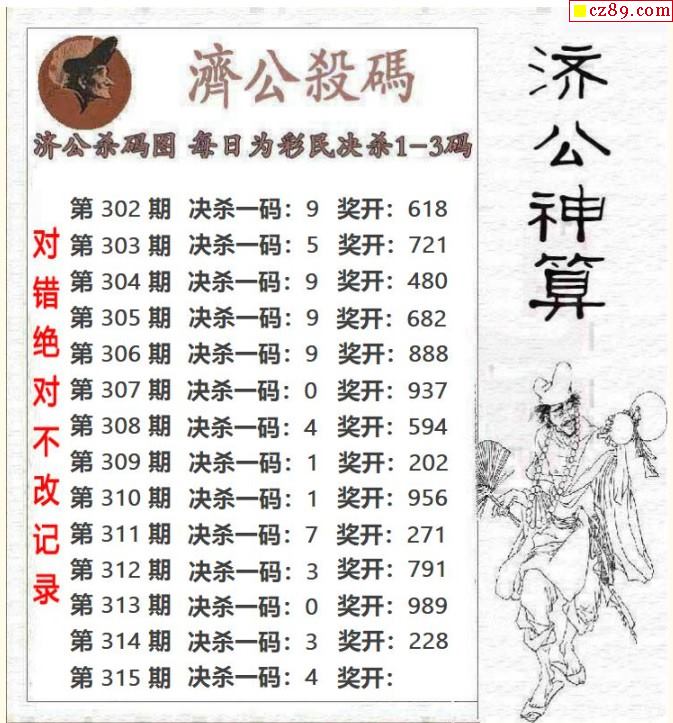 cz89.com
濟公殺碼
济公杀码图 每日为彩民决杀1-3码
第 302 期 决杀一码：9 奖开：618
第 303 期 决杀一码：5 奖开：721
第 304 期 决杀一码：9 奖开：480
第 305 期 决杀一码：9 奖开：682
第 306 期 决杀一码：9 奖开：888
第 307 期 决杀一码：0 奖开：937
第 308 期 决杀一码：4 奖开：594
第 309 期 决杀一码：1 奖开：202
第 310 期 决杀一码：1 奖开：956
第 311 期 决杀一码：7 奖开：271
第 312 期 决杀一码：3 奖开：791
第 313 期 决杀一码：0 奖开：989
第 314 期 决杀一码：3 奖开：228
第 315 期 决杀一码：4 奖开：
对错绝对不改记录
济公神算